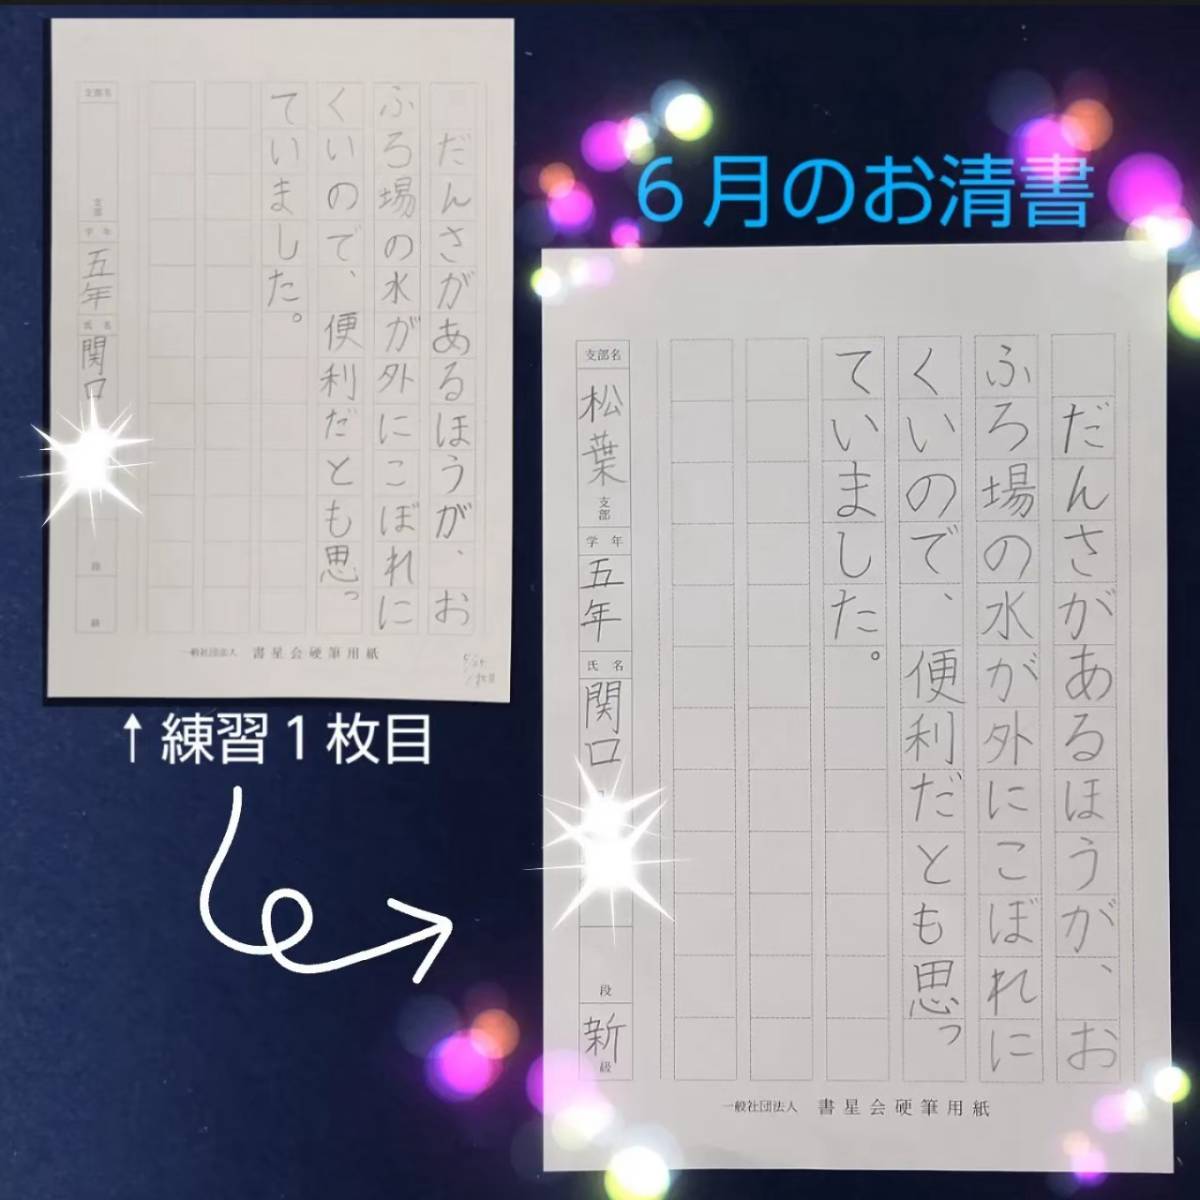 だんさがあるほうが、お
ふろ場の水が外にこぼれに
くいので、便利だとも思っ
ていました。
支部名
支部
学年
五年
氏名
関口
段
級
一般社団法人 書星会硬筆用紙
1枚目
↑練習1枚目
6月のお清書
だんさがあるほうが、お
ふろ場の水が外にこぼれに
くいので、便利だとも思っ
ていました。
支部名
松葉支部
学年
五年
氏名
関口
段
新級
一般社団法人 書星会硬筆用紙